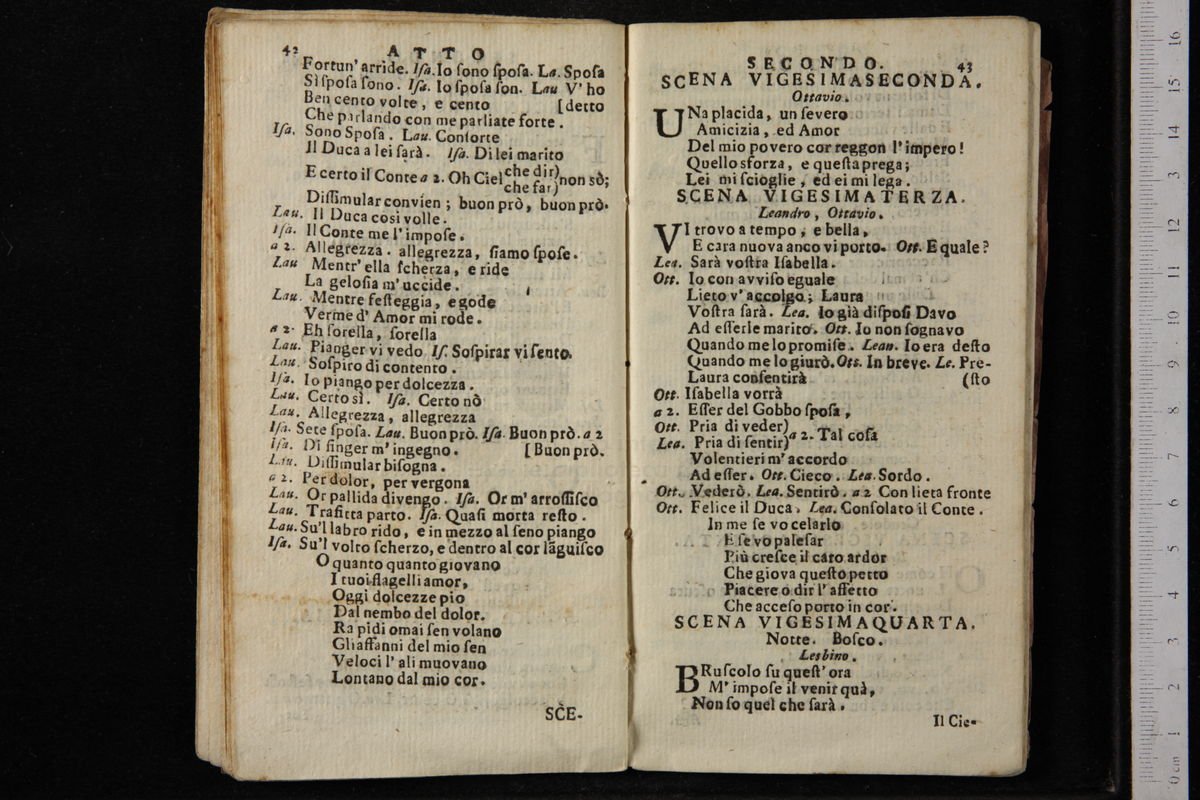 42 ATTO
Fortun' arride. Iſa. Io ſono ſpoſa. La. Spoſa
Sì ſpoſa ſono. Iſa. Io ſpoſa ſon. Lau V' ho
Ben cento volte, e cento [detto
Che parlando con me parliate forte.
Iſa. Sono Spoſa. Lau. Conſorte
Il Duca a lei ſarà. Iſa. Di lei marito
E certo il Conte a 2. Oh Ciel che dir) non sò;
che far)
Diſſimular convien; buon prò, buon prò.
Lau. Il Duca così volle.
Iſa. Il Conte me l' impoſe.
a 2. Allegrezza. allegrezza, ſiamo ſpoſe.
Lau Mentr' ella ſcherza, e ride
La geloſia m' uccide.
Lau. Mentre feſteggia, e gode
Verme d' Amor mi rode.
a 2. Eh ſorella, ſorella
Lau. Pianger vi vedo Iſ. Soſpirar vi ſento.
Lau. Soſpiro di contento.
Iſa. Io piango per dolcezza.
Lau. Certo sì. Iſa. Certo nò
Lau. Allegrezza, allegrezza
Iſa. Sete ſpoſa. Lau. Buon prò. Iſa. Buon prò. a 2
Iſa. Di finger m' ingegno. [Buon prò.
Lau. Diſſimular biſogna.
a 2. Per dolor, per vergona
Lau. Or pallida divengo. Iſa. Or m' arroſſiſco
Lau. Trafitta parto. Iſa. Quaſi morta reſto.
Lau. Su'l labro rido, e in mezzo al ſeno piango
Iſa. Su'l volto ſcherzo, e dentro al cor lãguiſco
O quanto quanto giovano
I tuoi flagelli amor,
Oggi dolcezze pio
Dal nembo del dolor.
Rapidi omai ſen volano
Gli affanni del mio ſen
Veloci l' ali muovano
Lontano dal mio cor.
SCE-
SECONDO. 43
SCENA VIGESIMASECONDA.
Ottavio.
UNa placida, un ſevero
Amicizia, ed Amor
Del mio povero cor reggon l' impero!
Quello sforza, e queſta prega;
Lei mi ſcioglie, ed ei mi lega.
SCENA VIGESIMATERZA.
Leandro, Ottavio.
VI trovo a tempo, e bella,
E cara nuova anco vi porto. Ott. E quale?
Lea. Sarà voſtra Iſabella.
Ott. Io con avviſo eguale
Lieto v' accolgo; Laura
Voſtra ſarà. Lea. Io già diſpoſi Davo
Ad eſſerle marito. Ott. Io non ſognavo
Quando me lo promiſe. Lean. Io era deſto
Quando me lo giurò. Ott. In breve. Le. Pre-
Laura conſentirà (ſto
Ott. Iſabella vorrà
a 2. Eſſer del Gobbo ſpoſa,
Ott. Pria di veder) a 2. Tal coſa
Lea. Pria di ſentir)
Volentieri m' accordo
Ad eſſer. Ott. Cieco. Lea. Sordo.
Ott. Vederò. Lea. Sentirò. a 2 Con lieta fronte
Ott. Felice il Duca. Lea. Conſolato il Conte.
In me ſe vo celarlo
E ſe vo paleſar
Più creſce il caro ardor
Che giova queſto petto
Piacere o dir l' affetto
Che acceſo porto in cor.
SCENA VIGESIMAQUARTA.
Notte. Boſco.
Lesbino.
BRuſcolo ſu queſt' ora
M' impoſe il venir quà,
Non ſo quel che ſarà.
Il Cie-